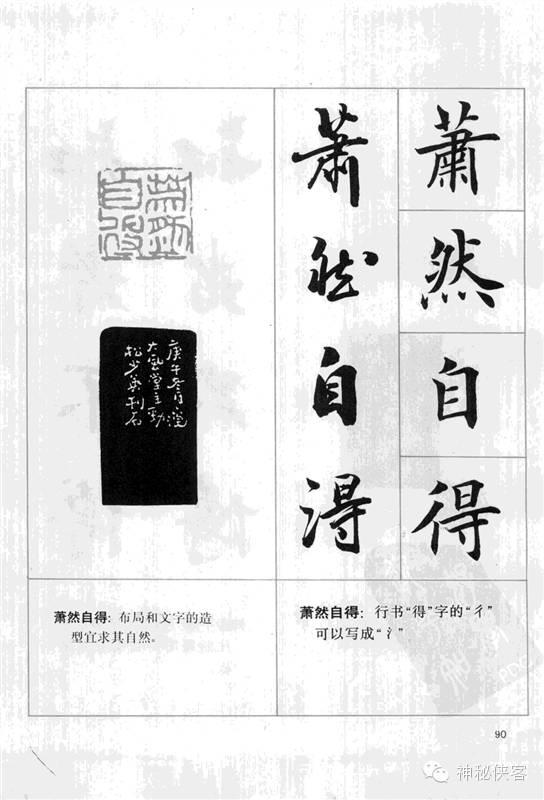 蕭然自得
蕭然自得
蕭然自得
庚午冬月灣
大風堂主勁
松少英刊石
萧然自得：布局和文字的造
型宜求其自然。
萧然自得：行书“得”字的“彳”
可以写成“氵”
90
神秘侠客